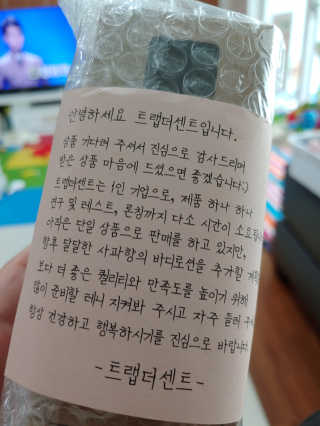 안녕하세요 트랩더센트입니다.
상품 기다려 주셔서 진심으로 감사드리며
받은 상품 마음에 드셨으면 좋겠습니다:)
트랩더센트는 1인 기업으로, 제품 하나 하나
연구 및 테스트, 론칭까지 다소 시간이 소요됩
아직은 단일 상품으로 판매를 하고 있지만,
향후 달달한 사과향의 바디로션을 추가할 계획
보다 더 좋은 퀄리티와 만족도를 높이기 위해
많이 준비할 테니 지켜봐 주시고 자주 들러
항상 건강하고 행복하시기를 진심으로 바랍니다.
-트랩더센트-